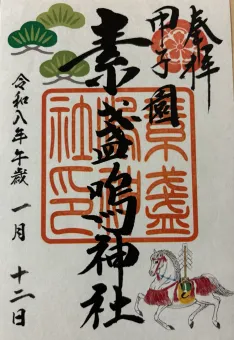 奉拝
甲子園
素盞嗚神社
令和八年午歳 一月 十二日
素盞
嗚神
社印